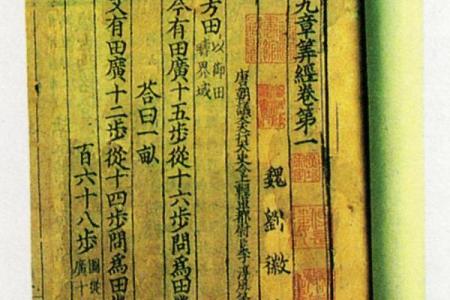 九章筭經卷第一
魏劉徽
唐朝議大夫行太史令上輕車都尉臣李淳風
方田以御田疇界域
今有田廣十五步從十六步問為田
荅曰一畝
又有田廣十二步從十四步問為田
百六十八步圖從廣十